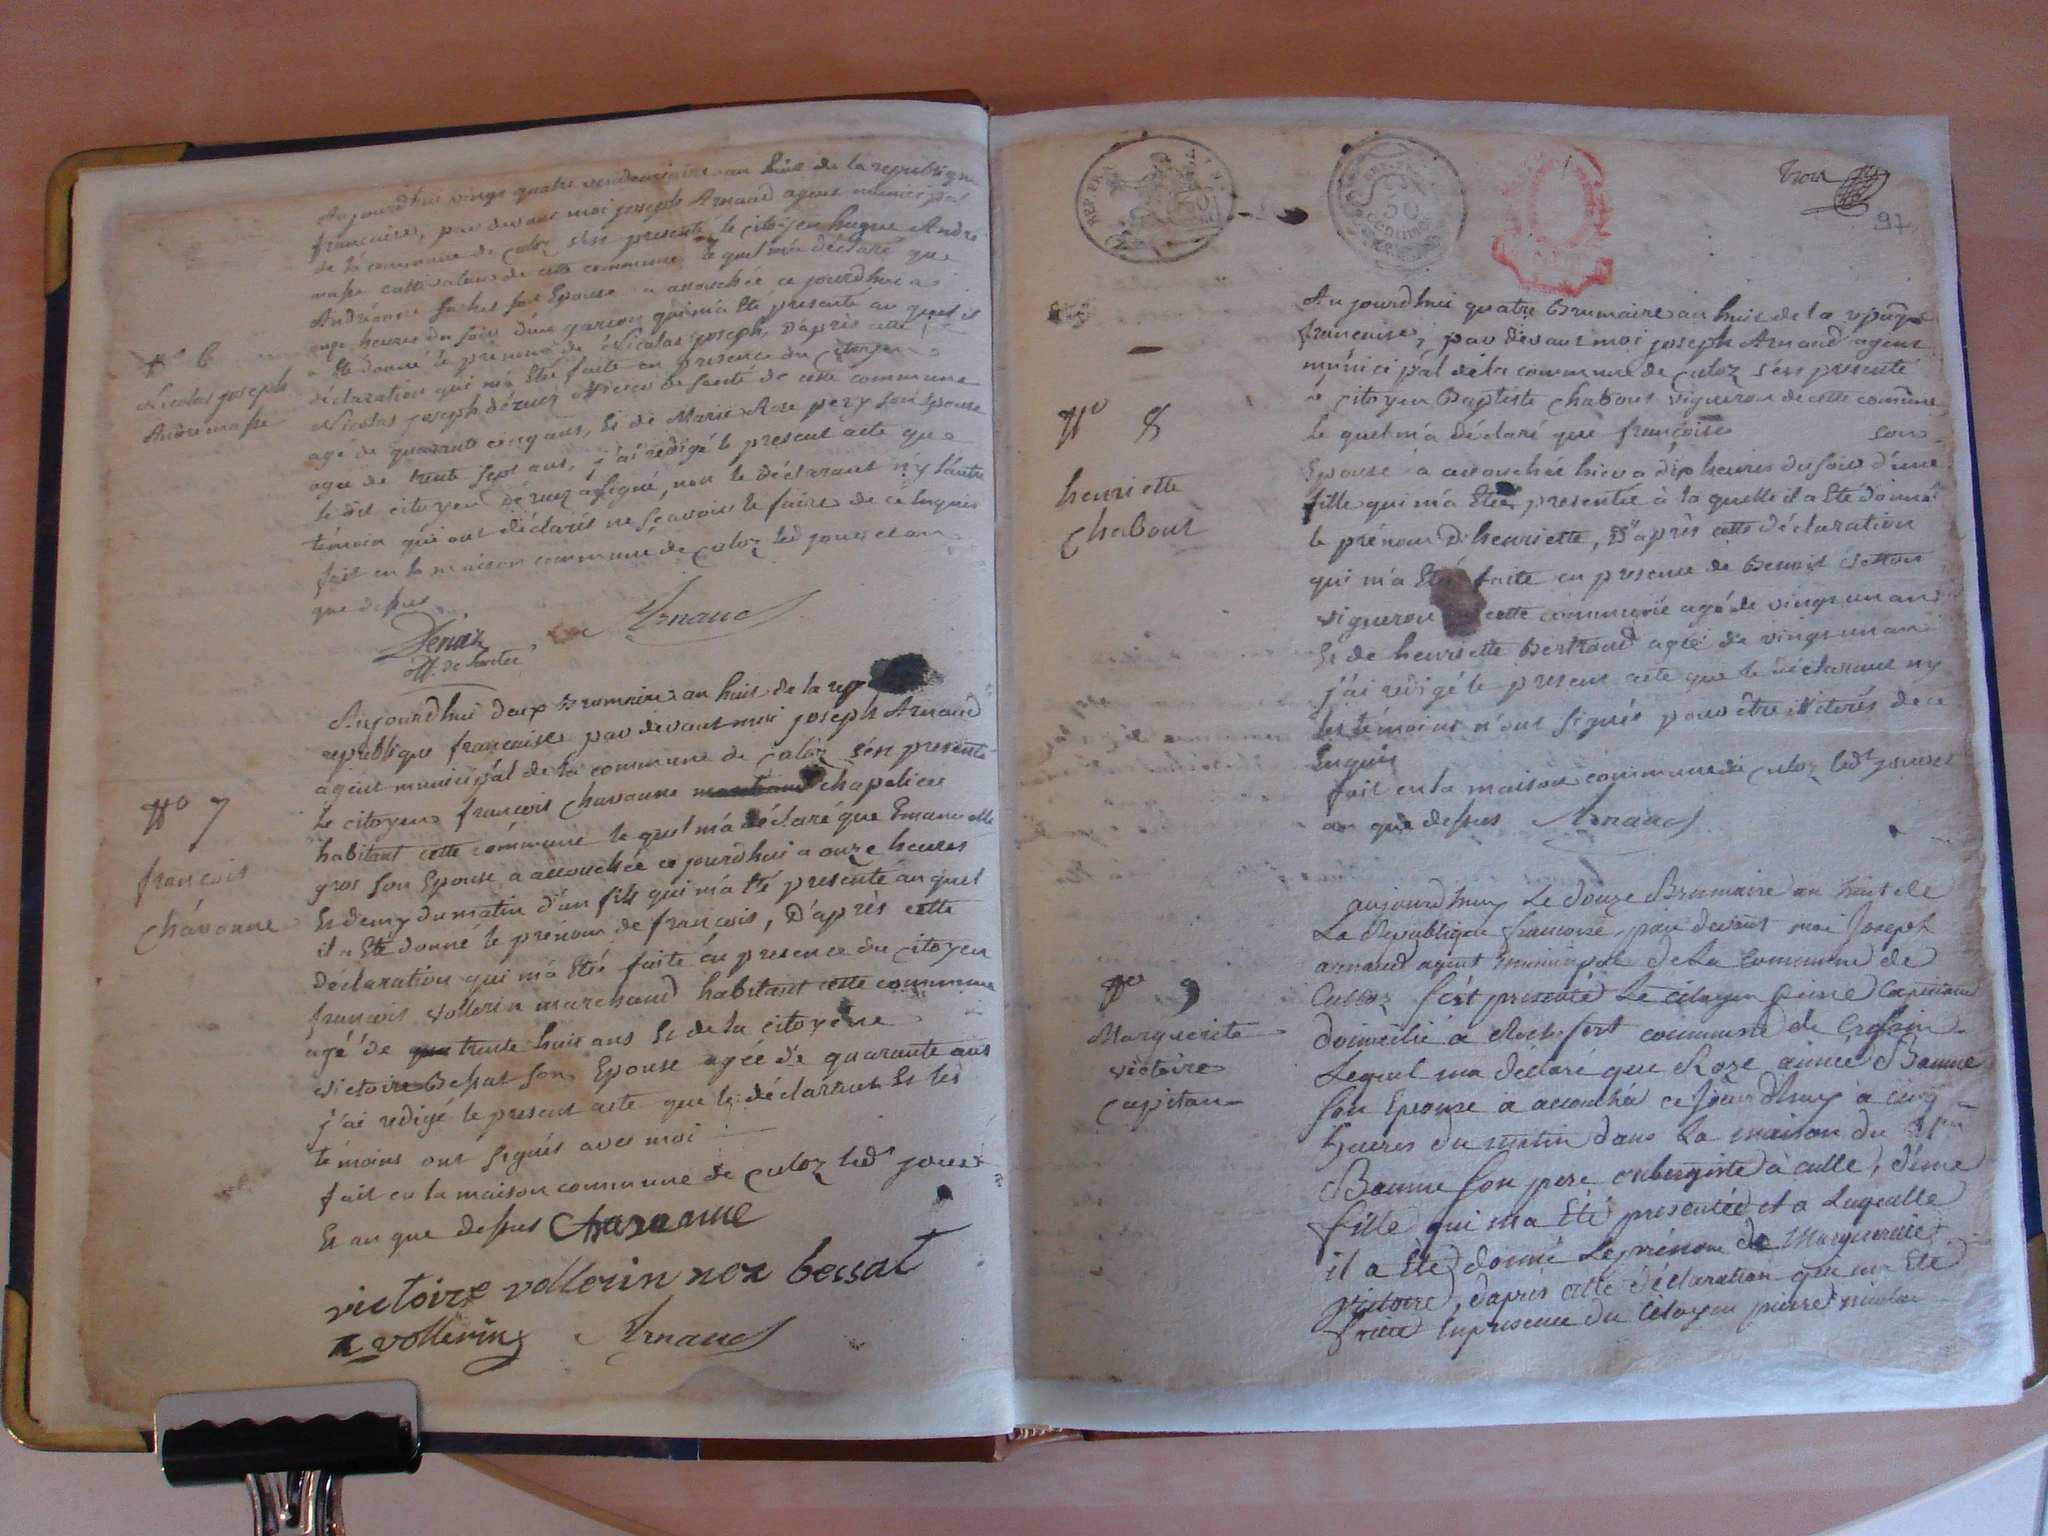 Aujourdhui vingt quatre vendemiaire an huit de la republique
francaise, par devant moi joseph Arnaud agent municipal
de la commune de culoz s'est presenté le citoyen hugue André
masse cultivateur de cette commune le quel m'a déclaré que
son Epouse a accouchée ce jourdhui a
onze heures du soir d'un garcon qui m'a Eté presenté au quel il
a Eté donné le prenom de Nicolas joseph, D'après cette
déclaration qui m'a Etée faite en presence du citoyen
Nicolas joseph dérnez officier de santé de cette commune
agé de quarante cinq ans, Et de Marie Rose pery son Epouse
agée de trente sept ans, j'ai rédigé le present acte que
le dit citoyen dérnez a signé, non le Déclarant n'y l'autre
témoin qui ont déclarés ne sçavoir le faire de ce Enquis
fait en la maison commune de culoz led jour et an
que dessus
off. de santé
Arnaud
N° 6
Nicolas joseph
André masse
Aujourdhui deux Brumaire an huit de la rep
republique francaise par devant moi joseph Arnaud
agent municipal de la commune de culoz s'est presenté
le citoyen francois chavanne chapelier
habitant cette commune le quel m'a déclaré que Emanuelle
gros son Epouse a accouchée ce jourdhui a onze heures
Et demy du matin d'un fils qui m'a Eté presenté au quel
il a Eté donné le prenom de francois, D'après cette
Déclaration qui m'a Etée faite en presence du citoyen
francois vollerin marchand habitant cette commune
agé de trente huit ans Et de la citoyene
victoire Bessat son Epouse agée de quarante ans
j'ai redigé le present acte que le déclarant Et les
témoins ont signés avec moi
fait en la maison commune de culoz led jour
Et an que dessus Chavanne
victoire vollerin nee bessat
vollerin Arnaud
N° 7
francois
chavanne
REP. FRA.
50
centimes
trois
97
Aujourdhui quatre Brumaire an huit de la republique
francaise, par devant moi joseph Arnaud agent
municipal de la commune de culoz s'est presenté
le citoyen Baptiste chabout vigneron de cette commune
le quel m'a déclaré que francoise son
Epouse a accouchée hier a dix heures du soir d'une
fille qui m'a Etée presentée à la quelle il a Eté donné
le prénom D'henriette, D'après cette déclaration
qui m'a Etée faite en presence de Benoit
vigneron cette commune agé de vingt un an
Et de henriette Bertrand agée de vingt un an
j'ai redigé le present acte que le déclarant n'y
les témoins n'ont signés pour être illiterés de ce
Enquis
fait en la maison commune de culoz led jour et
an que dessus Arnaud
N° 8
henriette
chabout
aujourd'huy Le douze Brumaire an huit de
La Republique francoise, par devant moi Joseph
arnaud agent municipal de La Commune de
Culloz s'est presenté Le citoyen Capitan
domicilié à Rochefort commune de Cressin
Lequel ma déclaré que Roze aimée Baume
son Epouse à accouché ce Jourd'huy à cinq
heures du matin dans La maison du
Baume son pere aubergiste à culle, d'une
fille qui ma Eté presentée et a Laquelle
il a Eté donné Le prénom de Marguerite
victoire, d'apres cette déclaration qui ma Eté
faite En presence du Citoyen pierre nicolas
N° 9
Marguerite
victoire
capitan